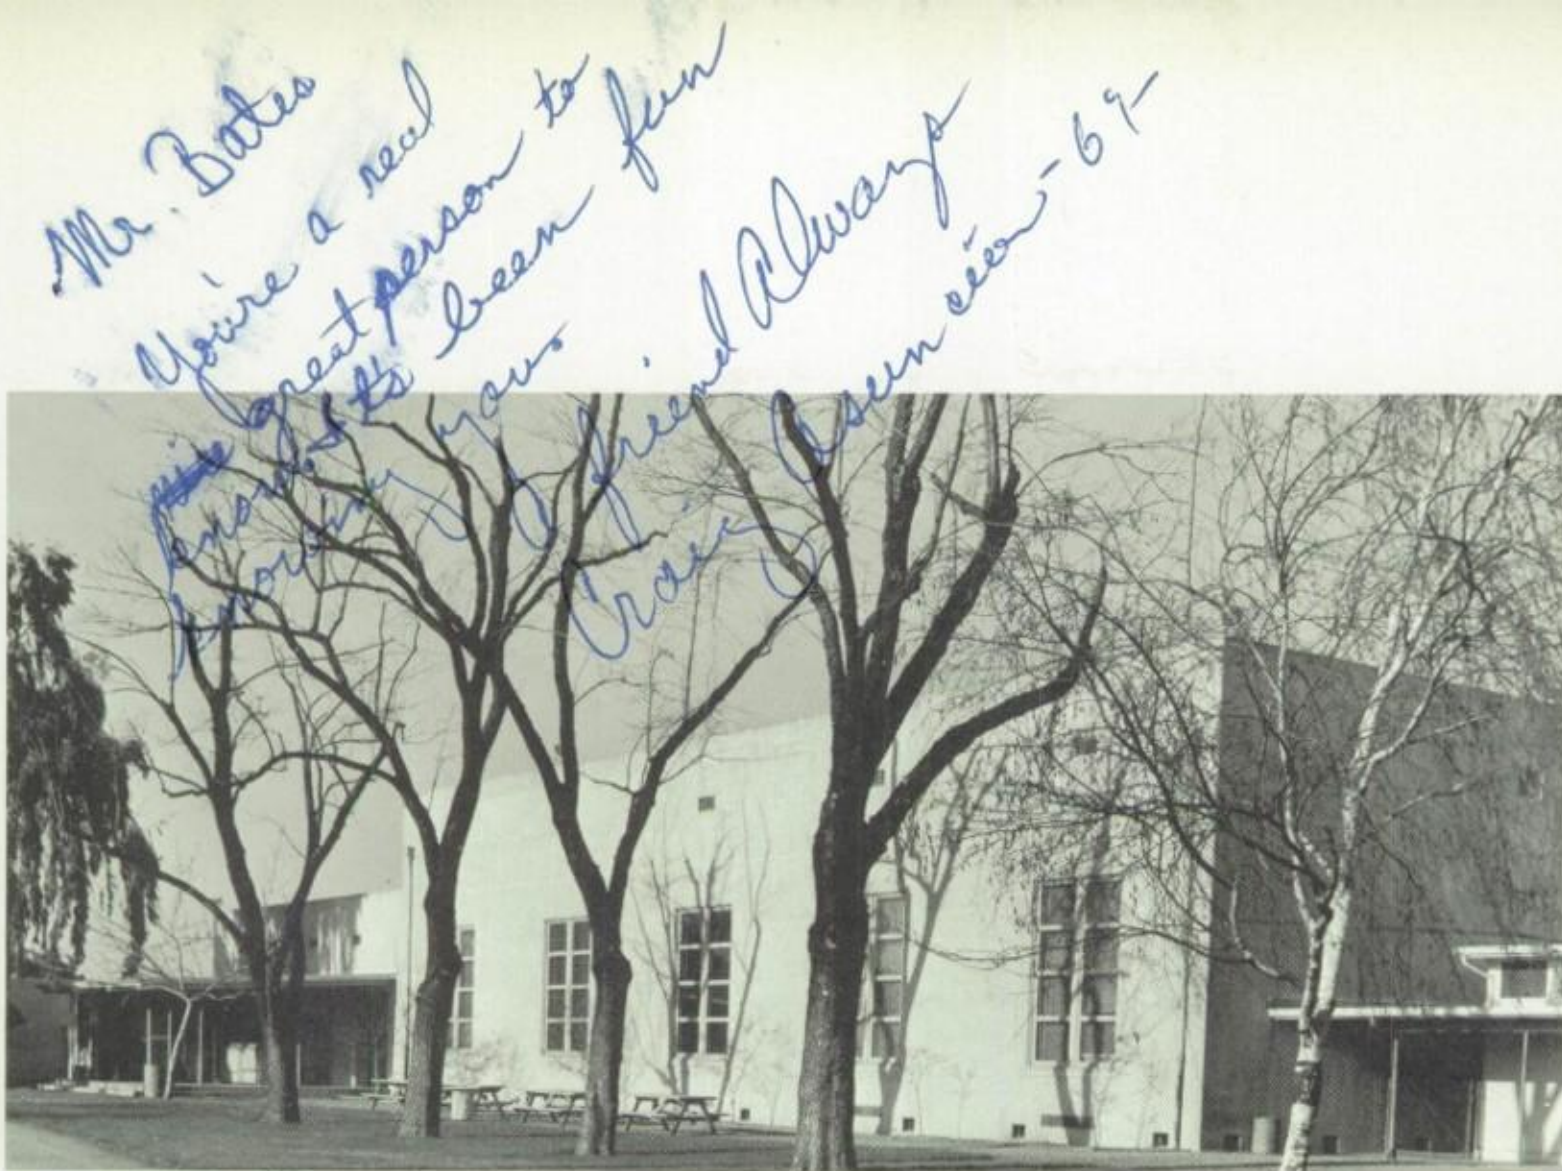 Mr. Bates
You're a real
great person to
know. It's been fun
knowing you
A friend Always
Craig Asuncion - 69-